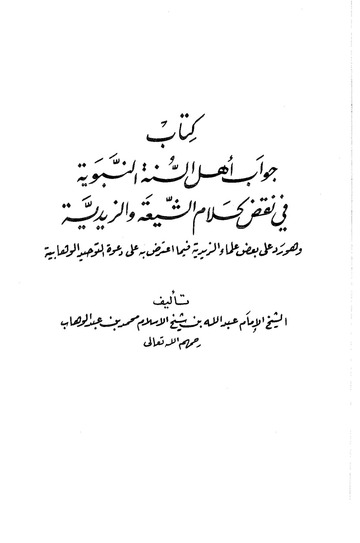 كتاب
جواب أهل السنة النبوية
في نقض كلام الشيعة والزيدية
وهو رد على بعض علماء الزيدية فيما اعترض به على دعوة التوحيد الوهابية
تأليف
الشيخ الإمام عبد الله بن شيخ الاسلام محمد بن عبد الوهاب
رحمهم الله تعالى